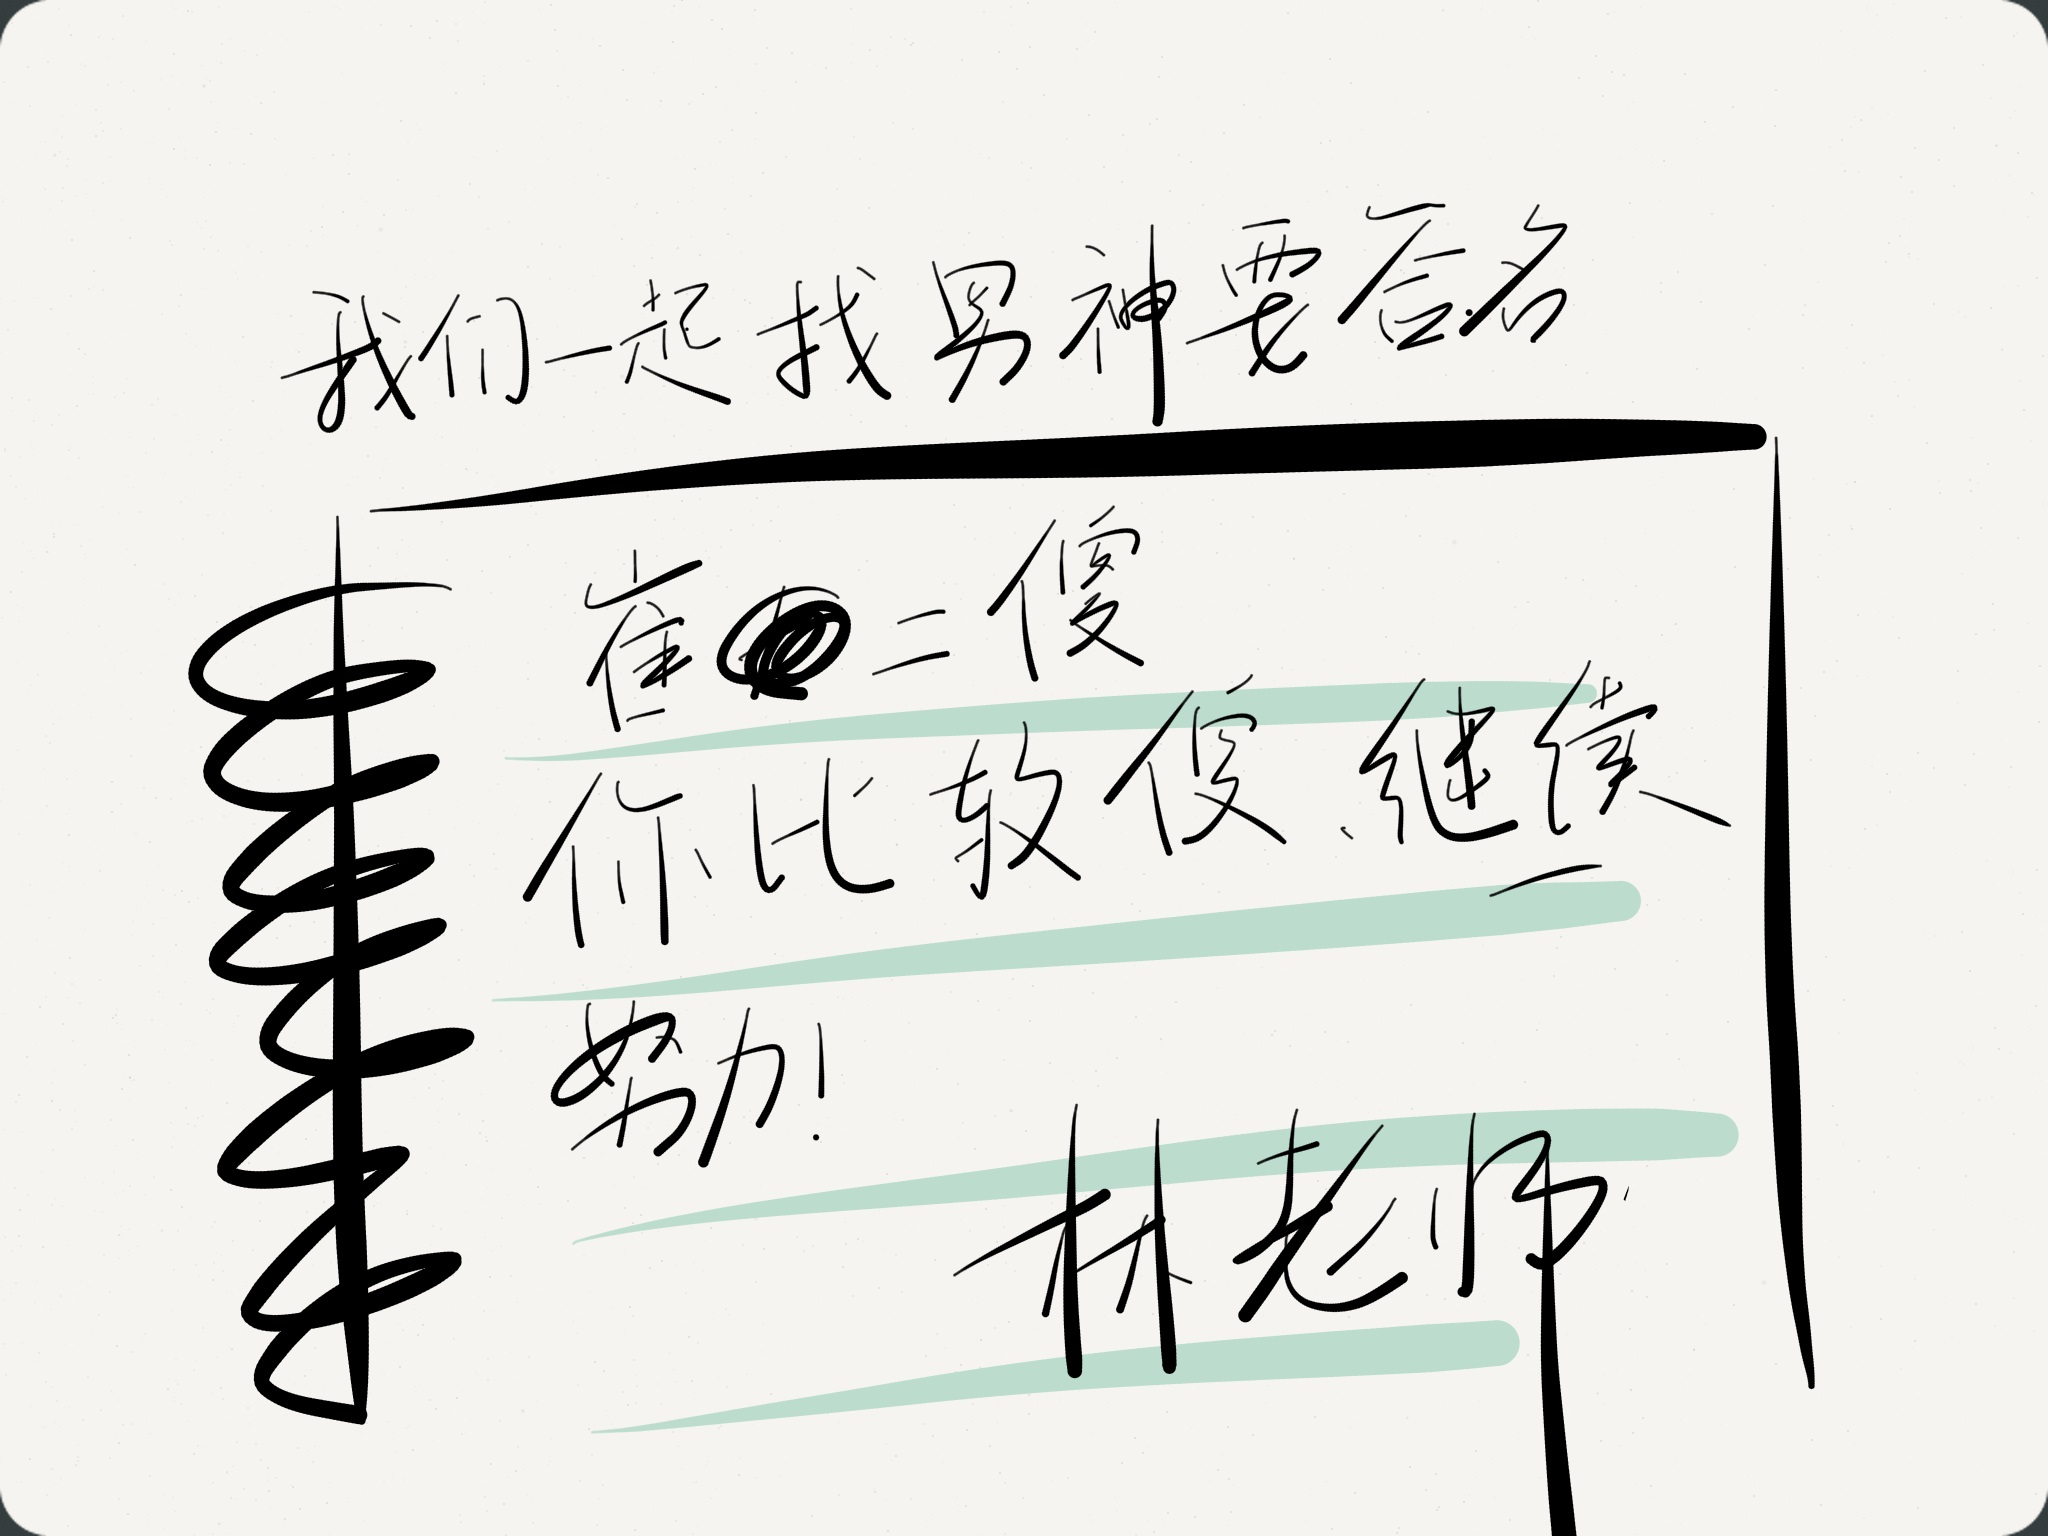 我们一起找男神要签名
崔二傻
你比较傻、继续
努力!
林老师